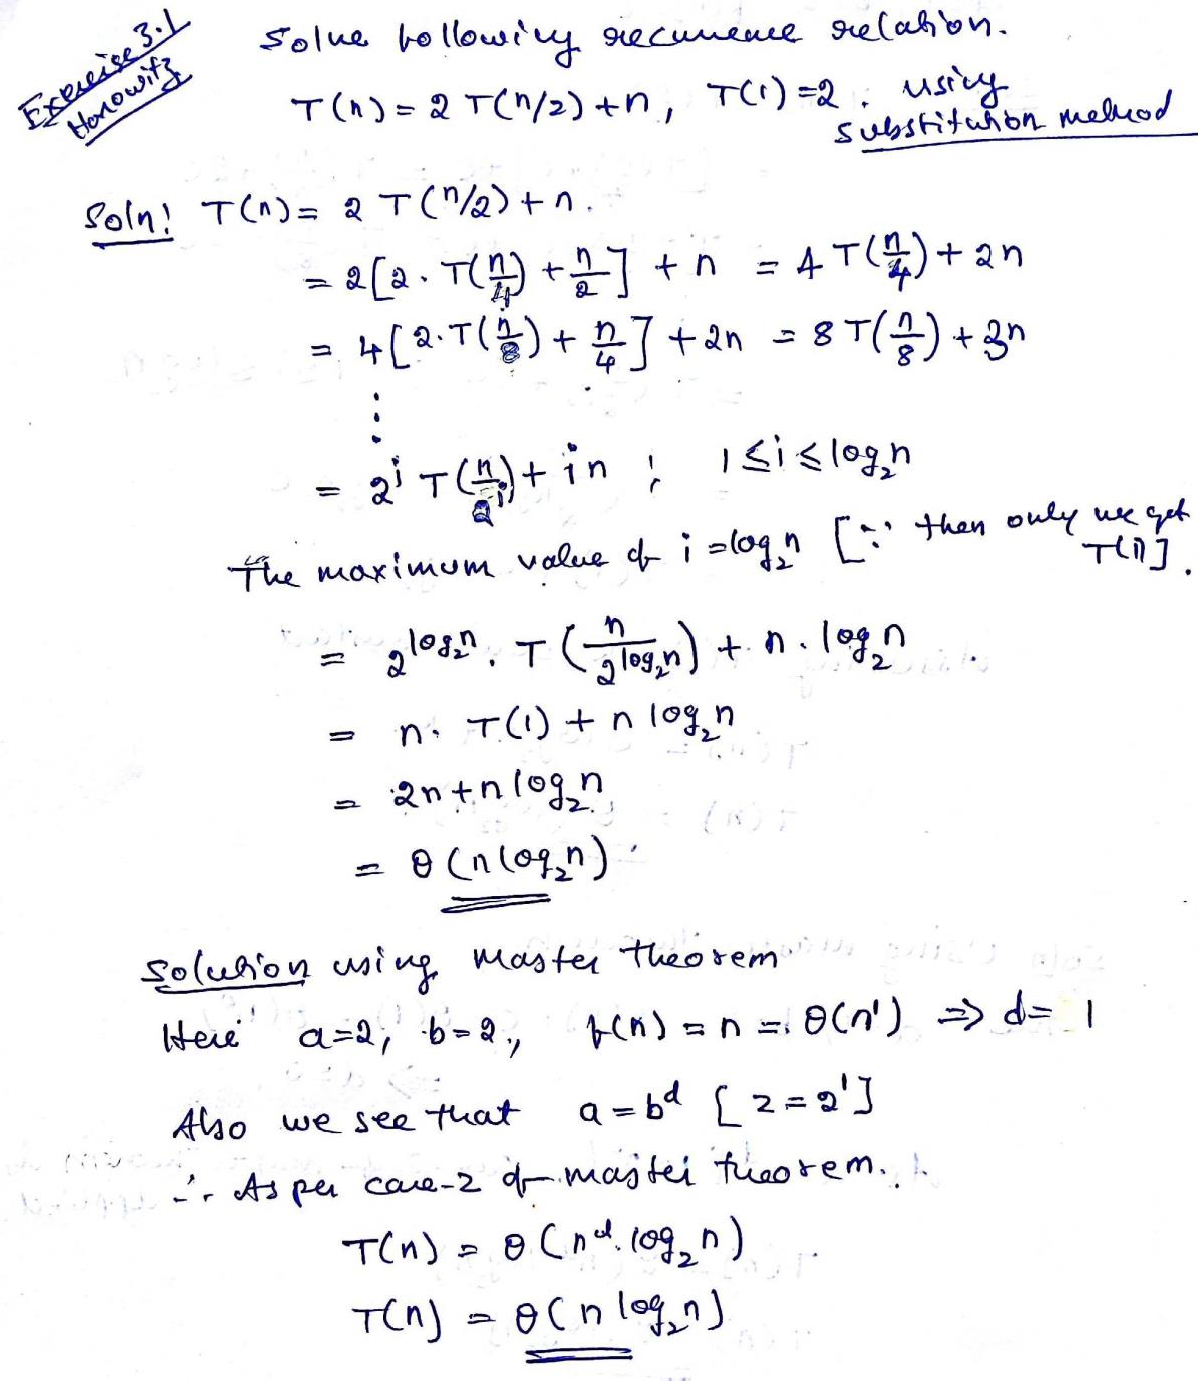 Exercise 3.1
Horowitz
Solve following recurrence relation.
T(n) = 2 T(n/2) + n, T(1) = 2. using
substitution method
Soln: T(n) = 2 T(n/2) + n.
= 2[2. T(n/4) + n/2] + n = 4 T(n/4) + 2n
= 4[2.T(n/8) + n/4] + 2n = 8 T(n/8) + 3n
⋮
= 2^i T(n/2^i) + in ; 1 ≤ i ≤ log₂n
The maximum value of i = log₂n [∵ then only we get
T(1)].
= 2^(log₂n). T(n/2^(log₂n)) + n. log₂n
= n. T(1) + n log₂n
= 2n + n log₂n
= θ(n log₂n)
Solution using master theorem
Here a=2, b=2, f(n) = n = θ(n¹) ⇒ d = 1
Also we see that a = b^d [2 = 2¹]
∴ As per case-2 of master theorem.
T(n) = θ(n^d. log₂n)
T(n) = θ(n log₂n)